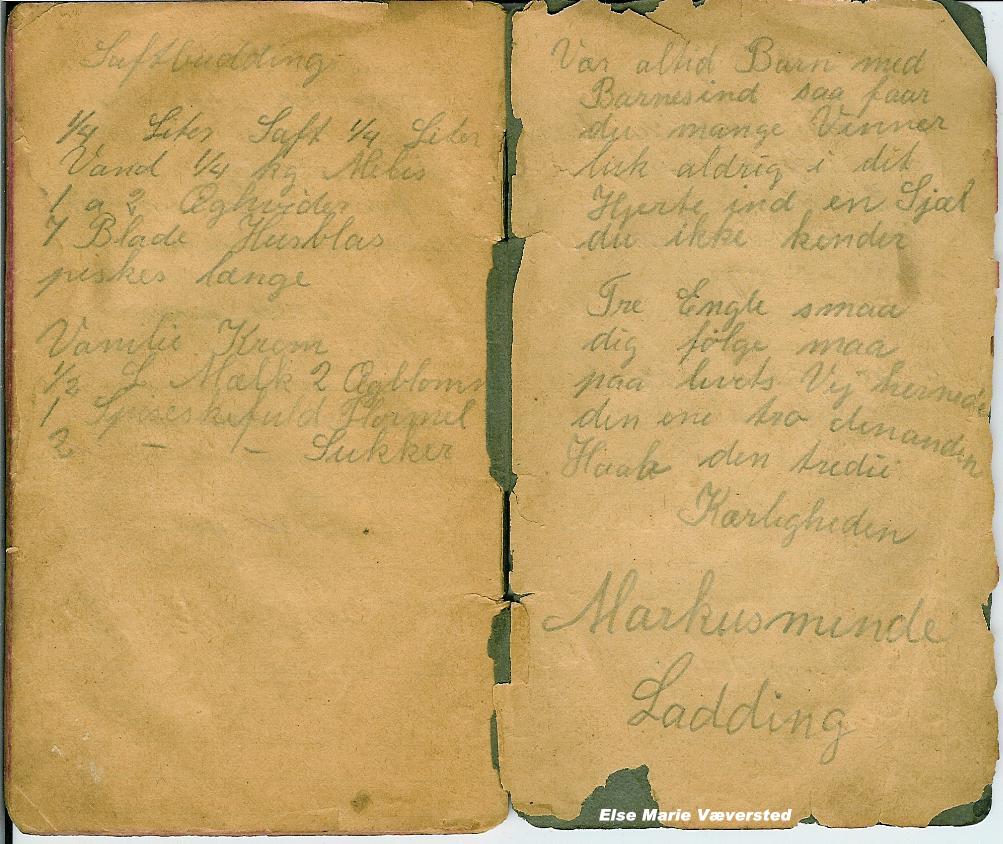 Saftbudding
1/4 Liter Saft 1/4 Liter
Vand 1/4 kg Melis
1 a 2 Æghvider
7 Blade Husblas
piskes længe
Vanilie Krem
1/2 L Mælk 2 Æggblomm
1 Spiseskefuld Flormel
2 — — Sukker
Vær altid Barn med
Barnesind saa faar
du mange Venner
luk aldrig i dit
Hjerte ind en Sjæl
du ikke kender
Tre Engle smaa
dig følge maa
paa livets Vej hernede
den ene tro denanden
Haab den tredie
Kærligheden
Markusminde
Ladding
Else Marie Væversted